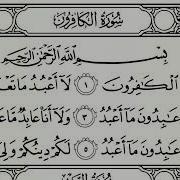 سُورَةُ الْكَافِرُونَ
بِسْمِ اللَّهِ الرَّحْمَٰنِ الرَّحِيمِ
الْكَٰفِرُونَ ١ لَآ أَعْبُدُ مَا تَعْ
عَٰبِدُونَ مَآ أَعْبُدُ ٣ وَلَآ أَنَا۠ عَابِدٌ مَّا عَ
عَٰبِدُونَ مَآ أَعْبُدُ ٥ لَكُمْ دِينُكُمْ وَلِىَ